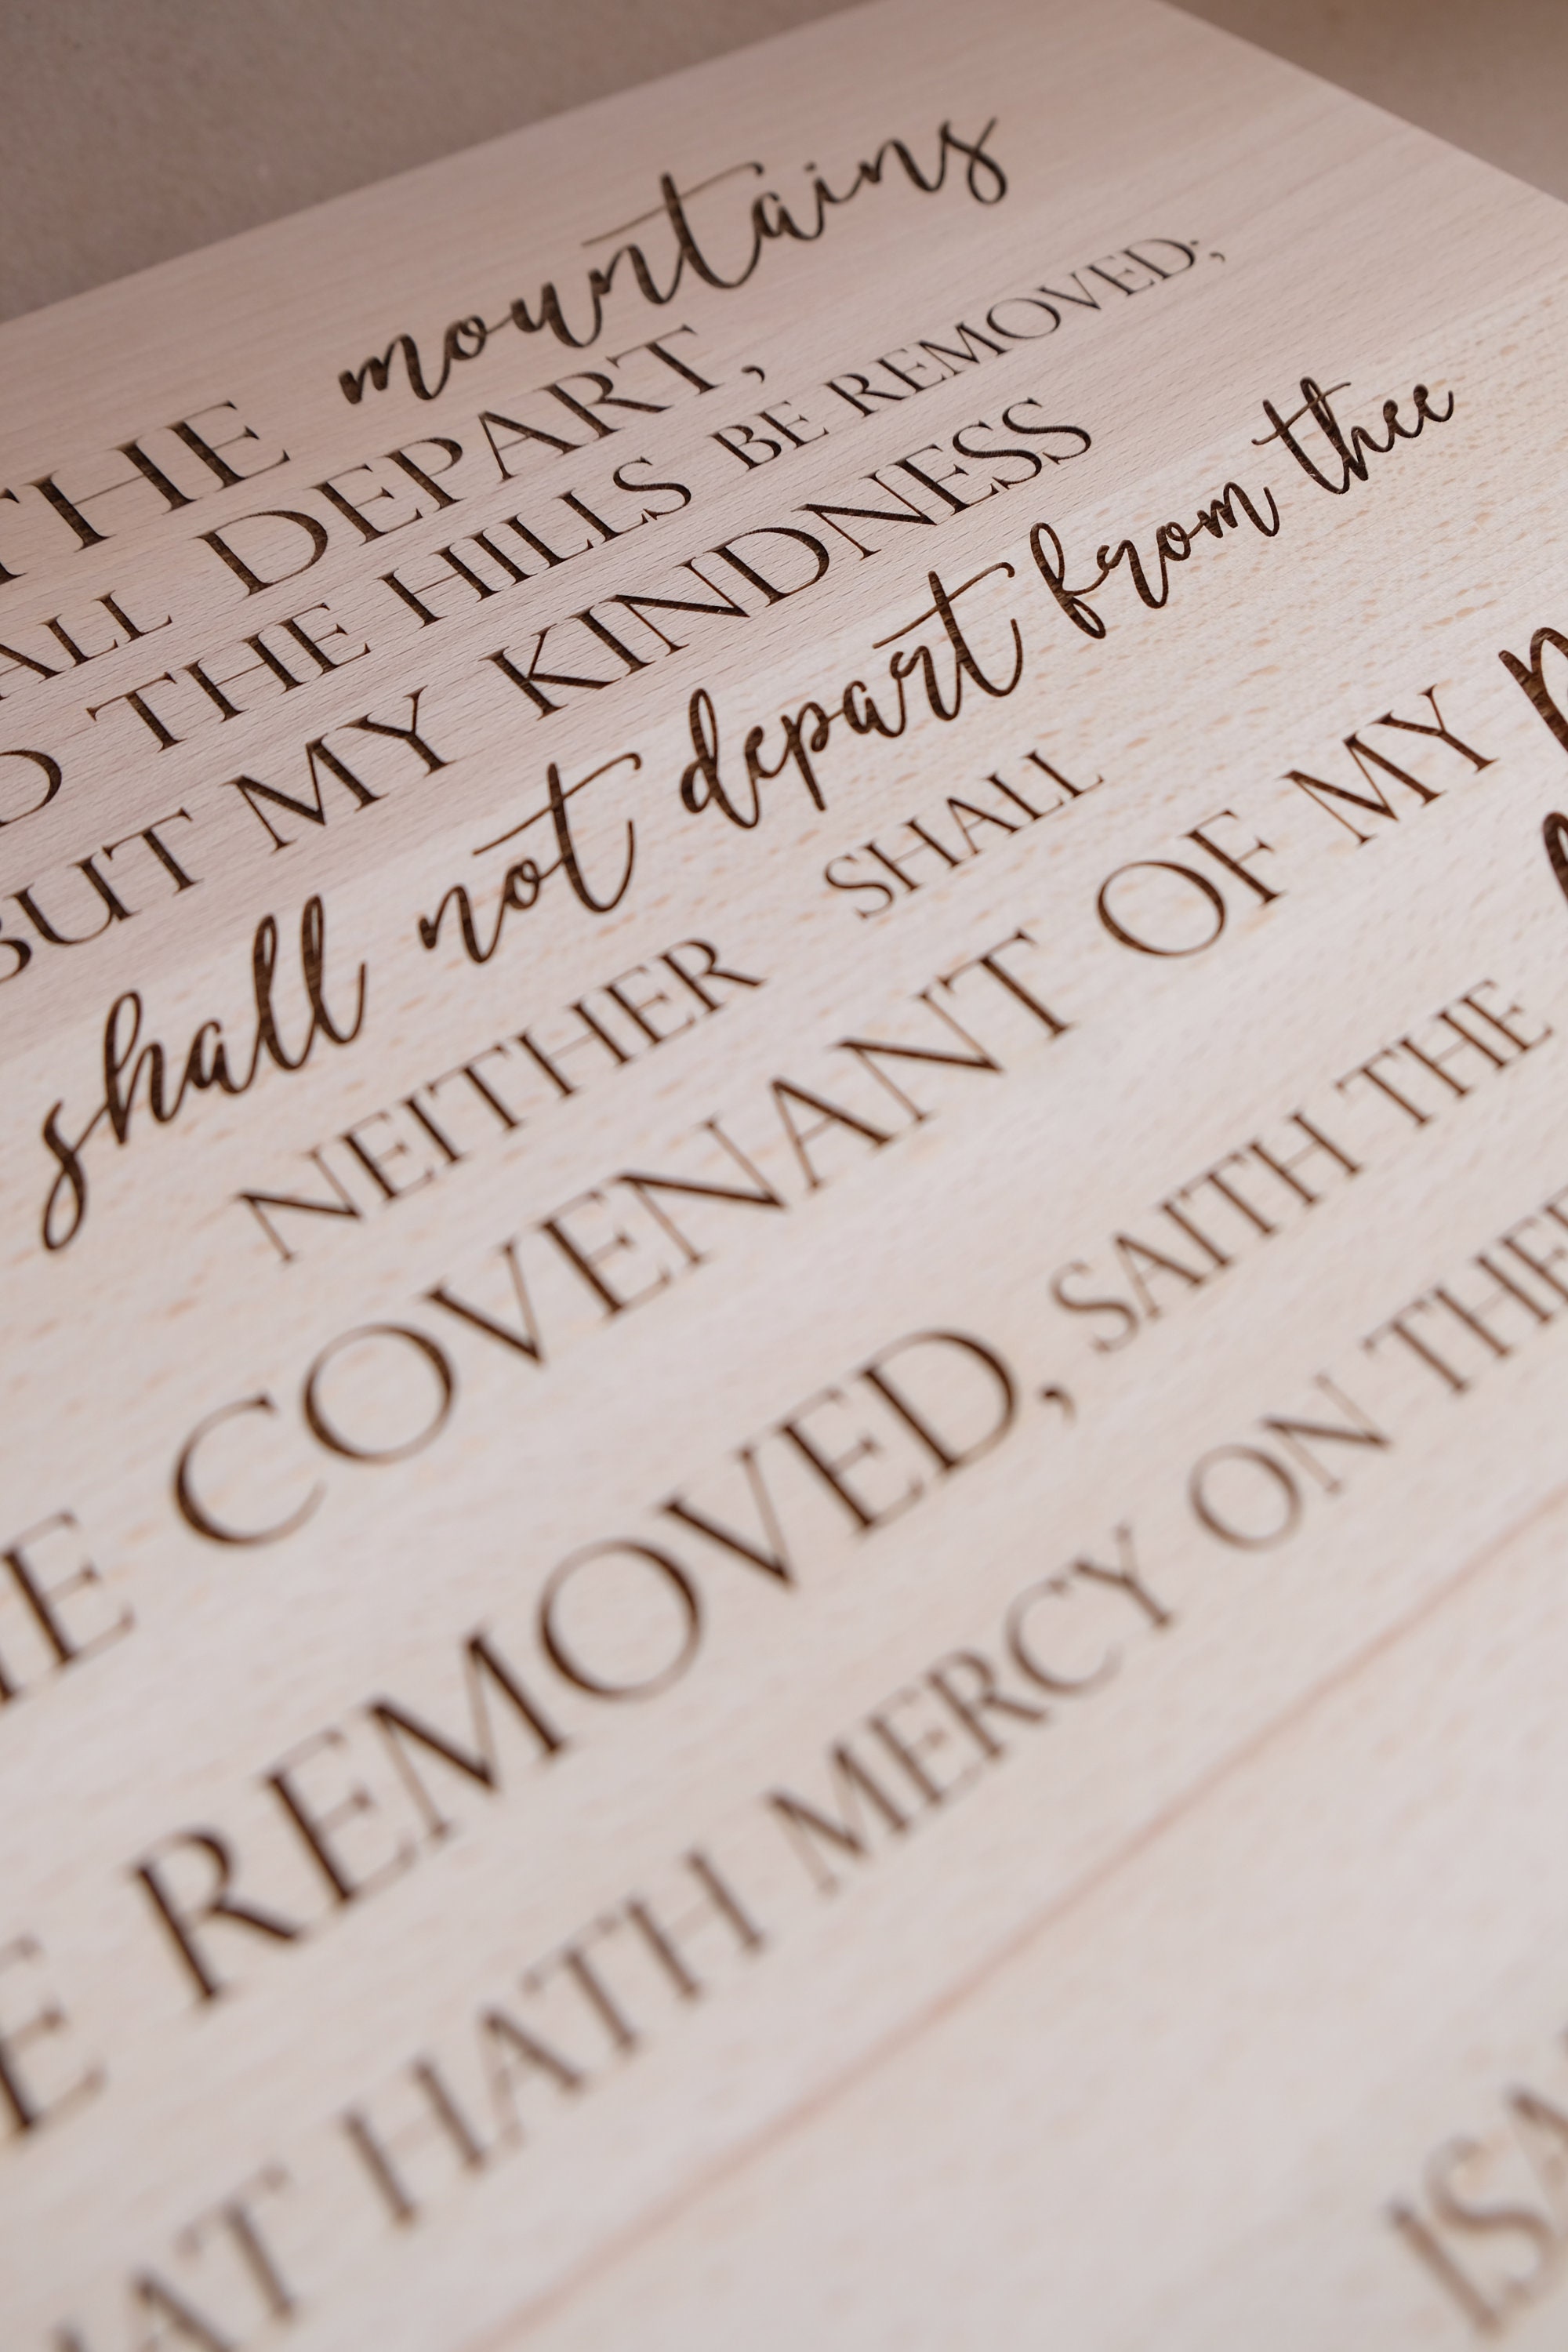 THE mountains
ALL DEPART,
THE HILLS BE REMOVED;
BUT MY KINDNESS
shall not depart from thee
NEITHER SHALL
COVENANT OF MY
REMOVED, SAITH THE
HATH MERCY ON